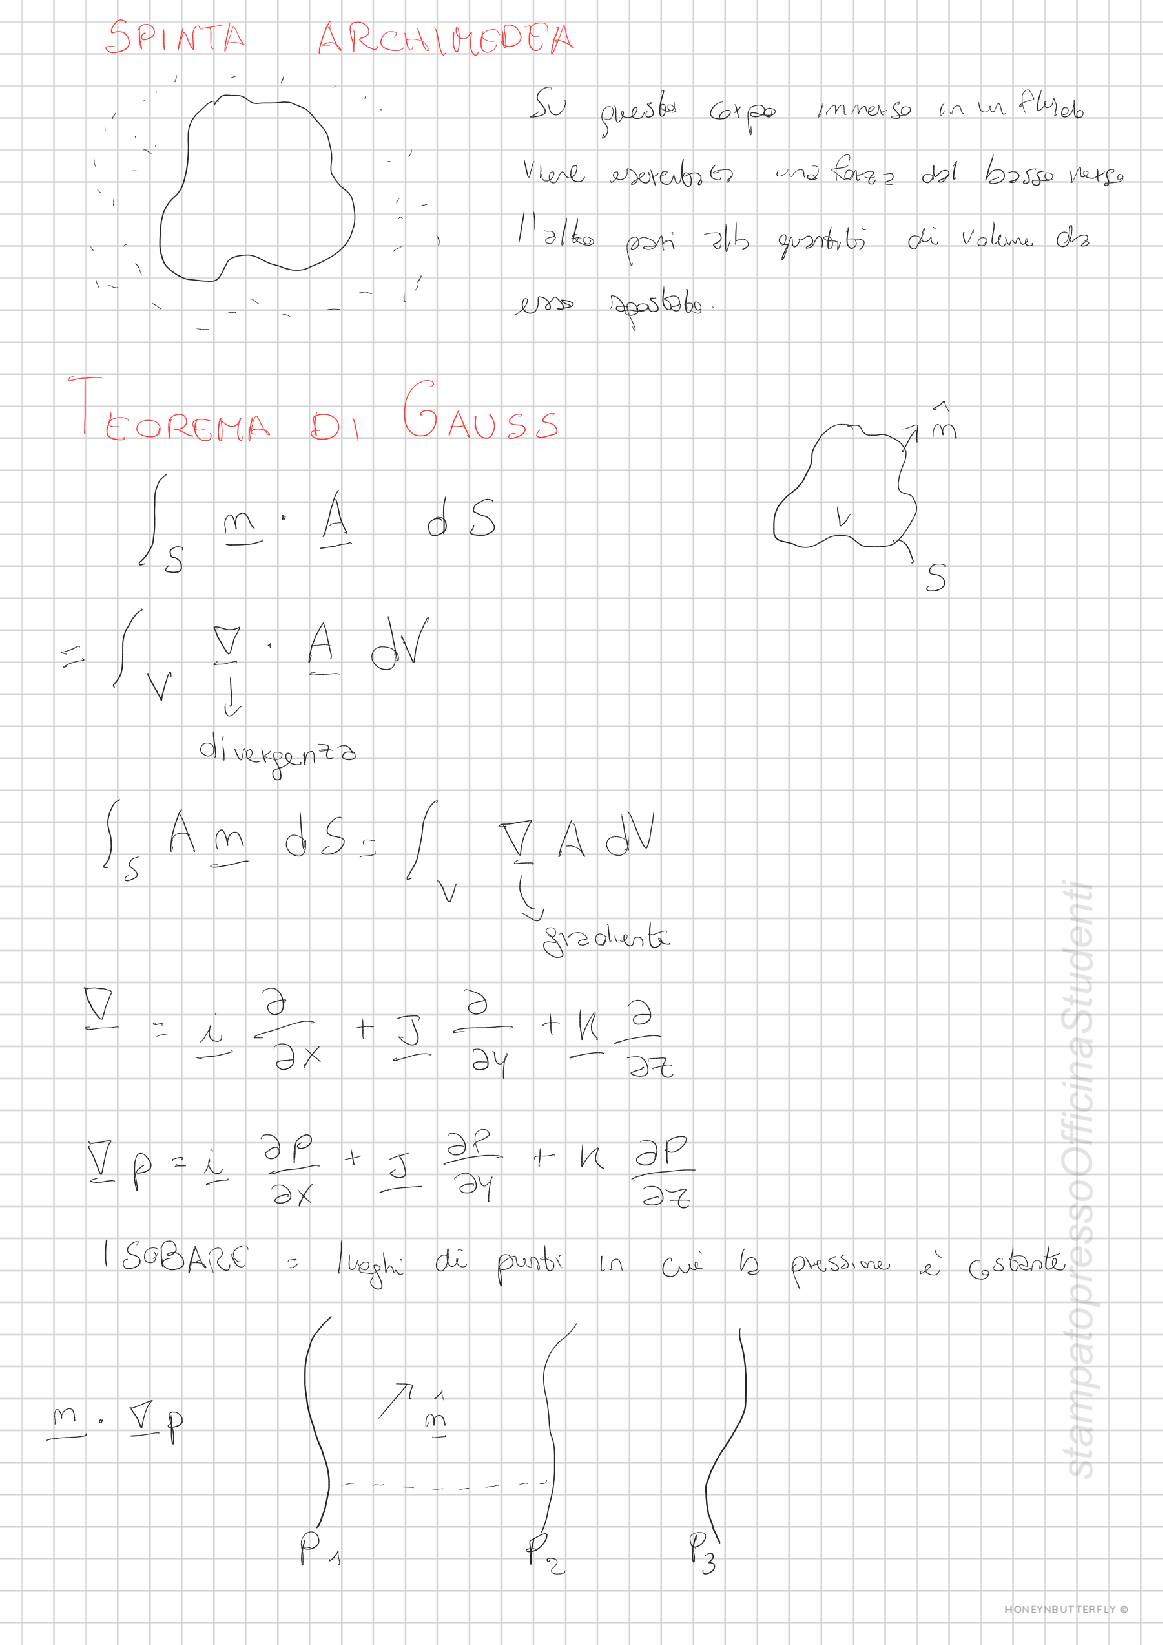 SPINTA ARCHIMEDEA
Su questo corpo immerso in un fluido
viene esercitata una forza dal basso verso
l'alto pari alla quantità di volume da
esso spostato.
TEOREMA DI GAUSS
n̂
∫_S n · A dS
V
S
= ∫_V ∇ · A dV
↓
divergenza
∫_S A n dS = ∫_V ∇ A dV
gradiente
∇ = i ∂/∂x + J ∂/∂y + K ∂/∂z
∇p = i ∂P/∂x + J ∂P/∂y + K ∂P/∂z
ISOBARE = luoghi di punti in cui la pressione è costante
n · ∇p
n̂
P1 P2 P3
stampatopressoOfficinaStudenti
HONEYNBUTTERFLY ©